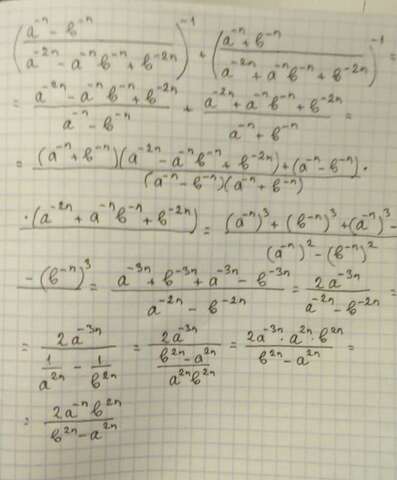 ((a^-n - b^-n)/(a^-2n - a^-n b^-n + b^-2n))^-1 + ((a^-n + b^-n)/(a^-2n + a^-n b^-n + b^-2n))^-1 =
= (a^-2n - a^-n b^-n + b^-2n)/(a^-n - b^-n) + (a^-2n + a^-n b^-n + b^-2n)/(a^-n + b^-n) =
= ((a^-n + b^-n)(a^-2n - a^-n b^-n + b^-2n) + (a^-n - b^-n)·)/((a^-n - b^-n)(a^-n + b^-n))
·(a^-2n + a^-n b^-n + b^-2n) = ((a^-n)^3 + (b^-n)^3 + (a^-n)^3 -)/((a^-n)^2 - (b^-n)^2)
- (b^-n)^3 = (a^-3n + b^-3n + a^-3n - b^-3n)/(a^-2n - b^-2n) = 2a^-3n/(a^-2n - b^-2n) =
= 2a^-3n/(1/a^2n - 1/b^2n) = 2a^-3n/((b^2n - a^2n)/(a^2n b^2n)) = (2a^-3n · a^2n · b^2n)/(b^2n - a^2n) =
= (2a^-n b^2n)/(b^2n - a^2n)